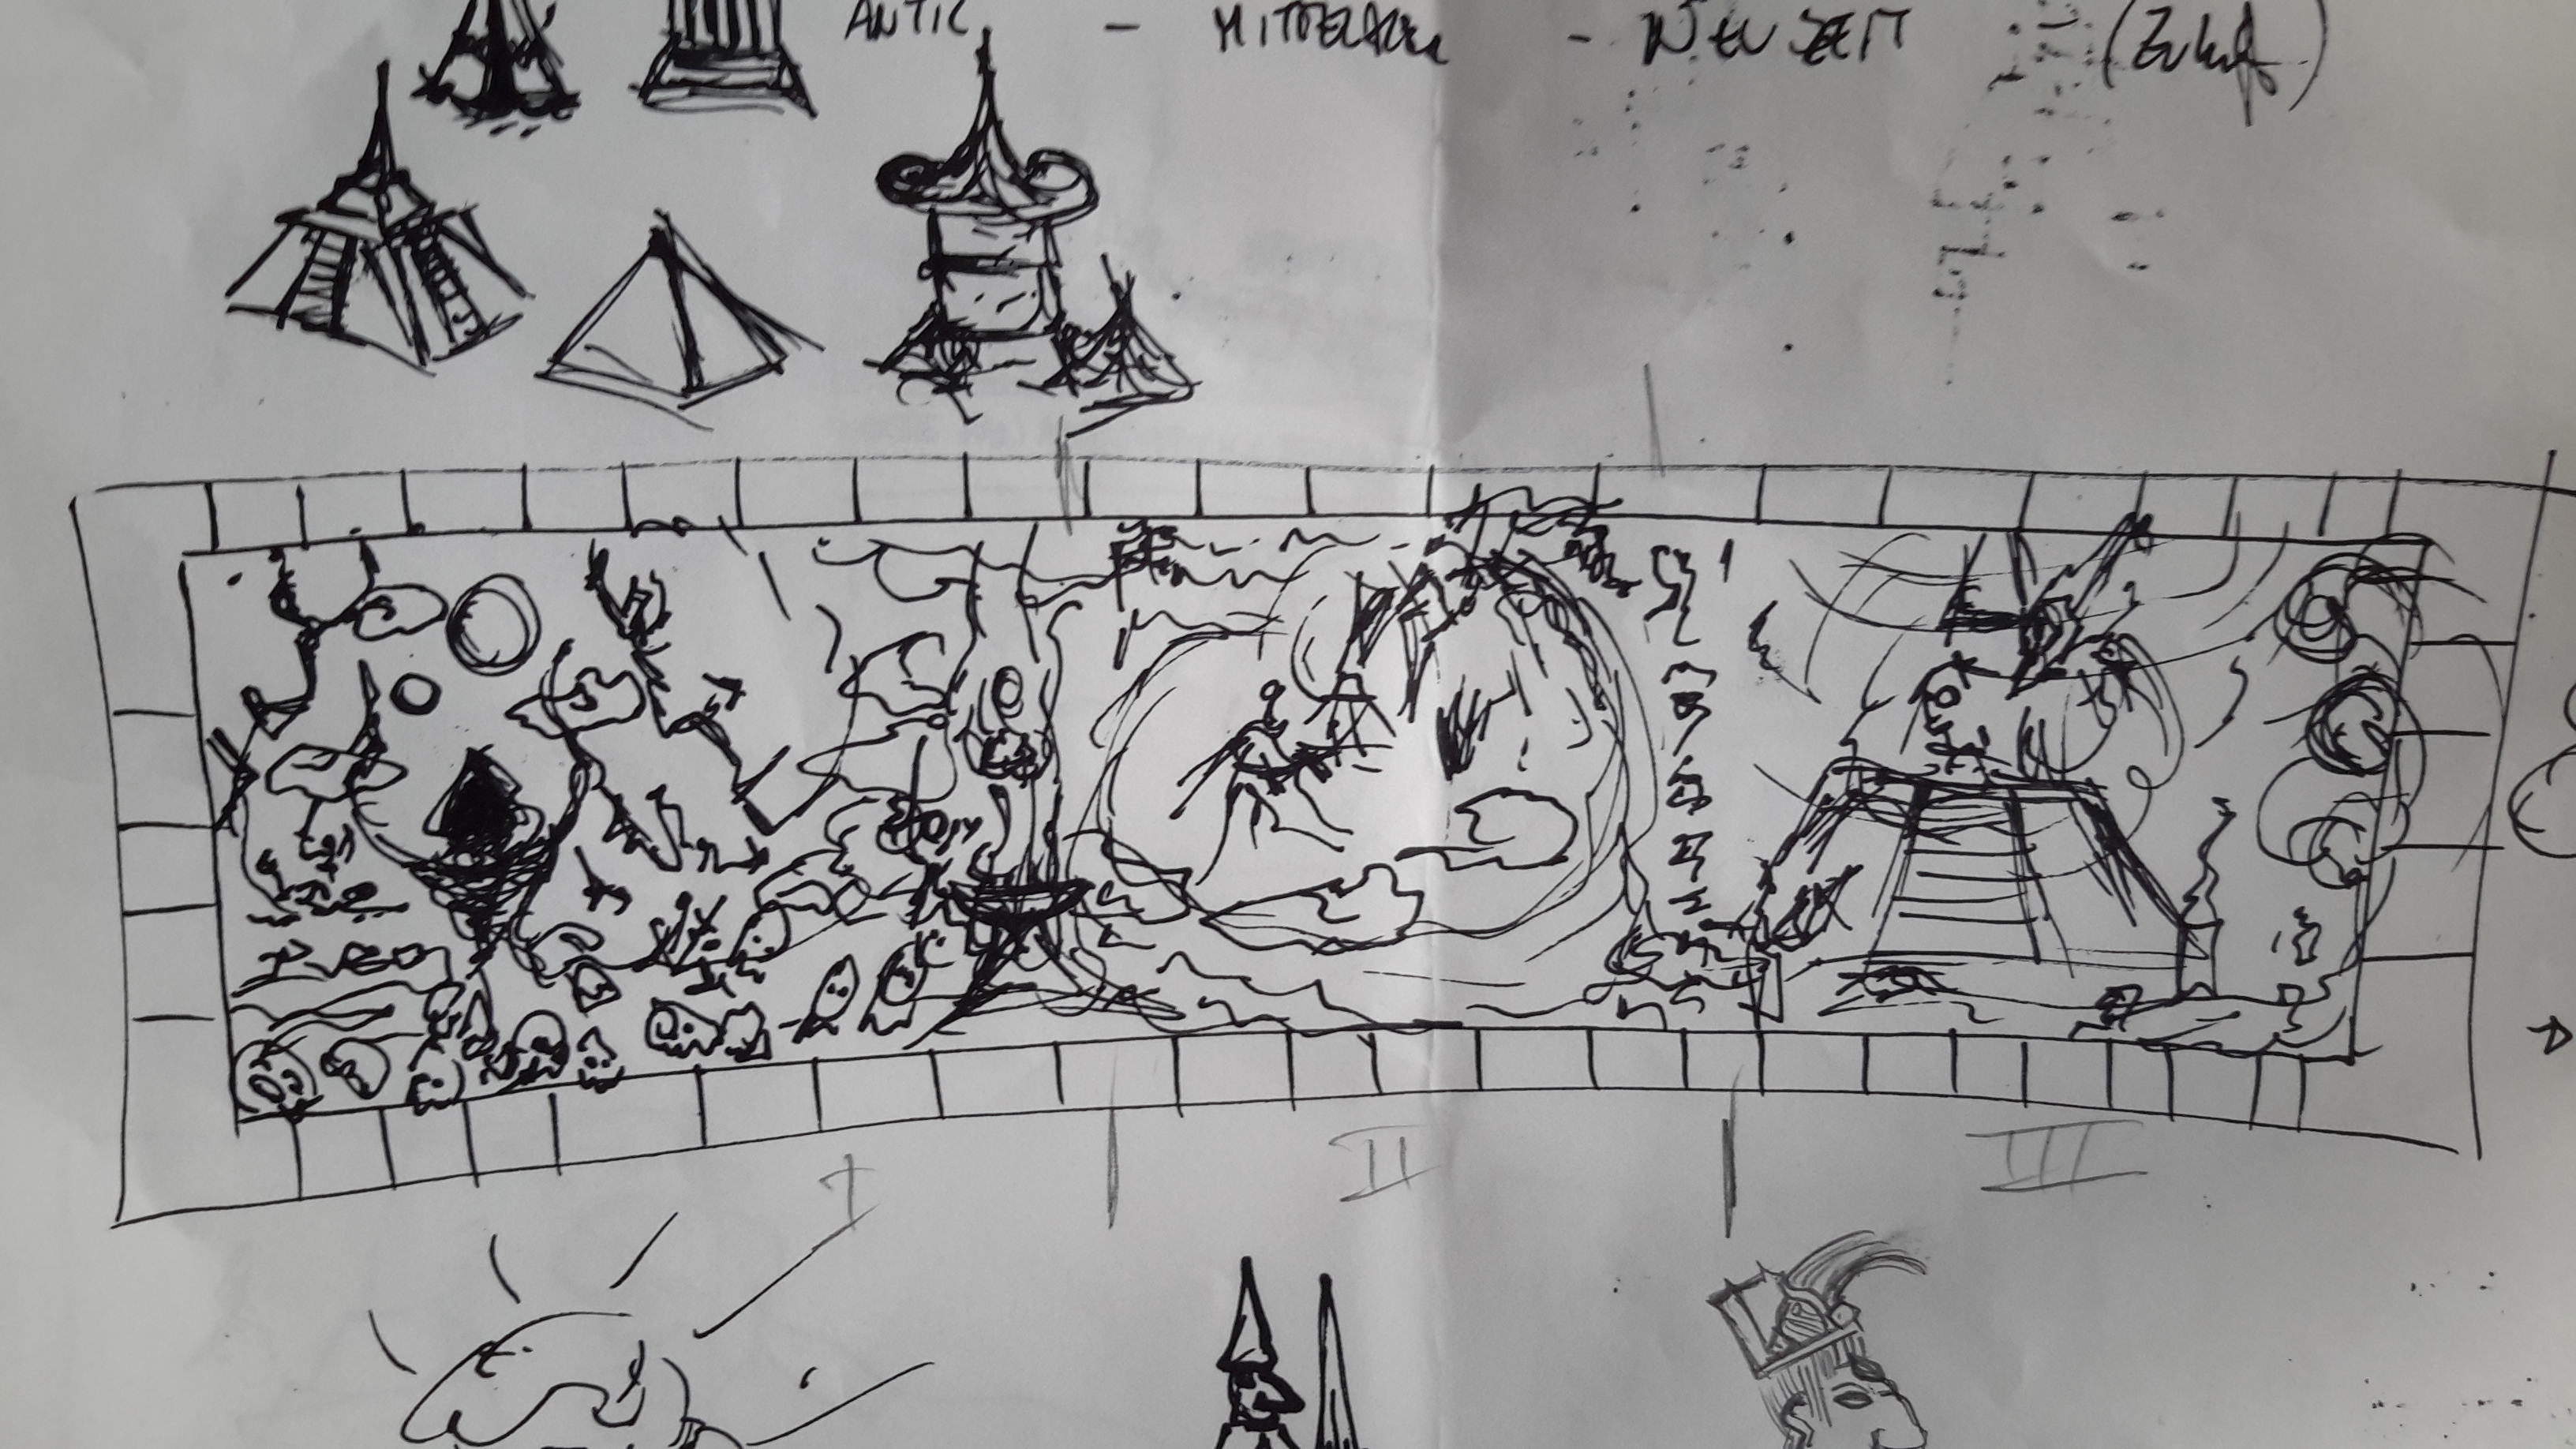 ANTIK - MITTELALTER - NEUZEIT (Zukunft)
I II III